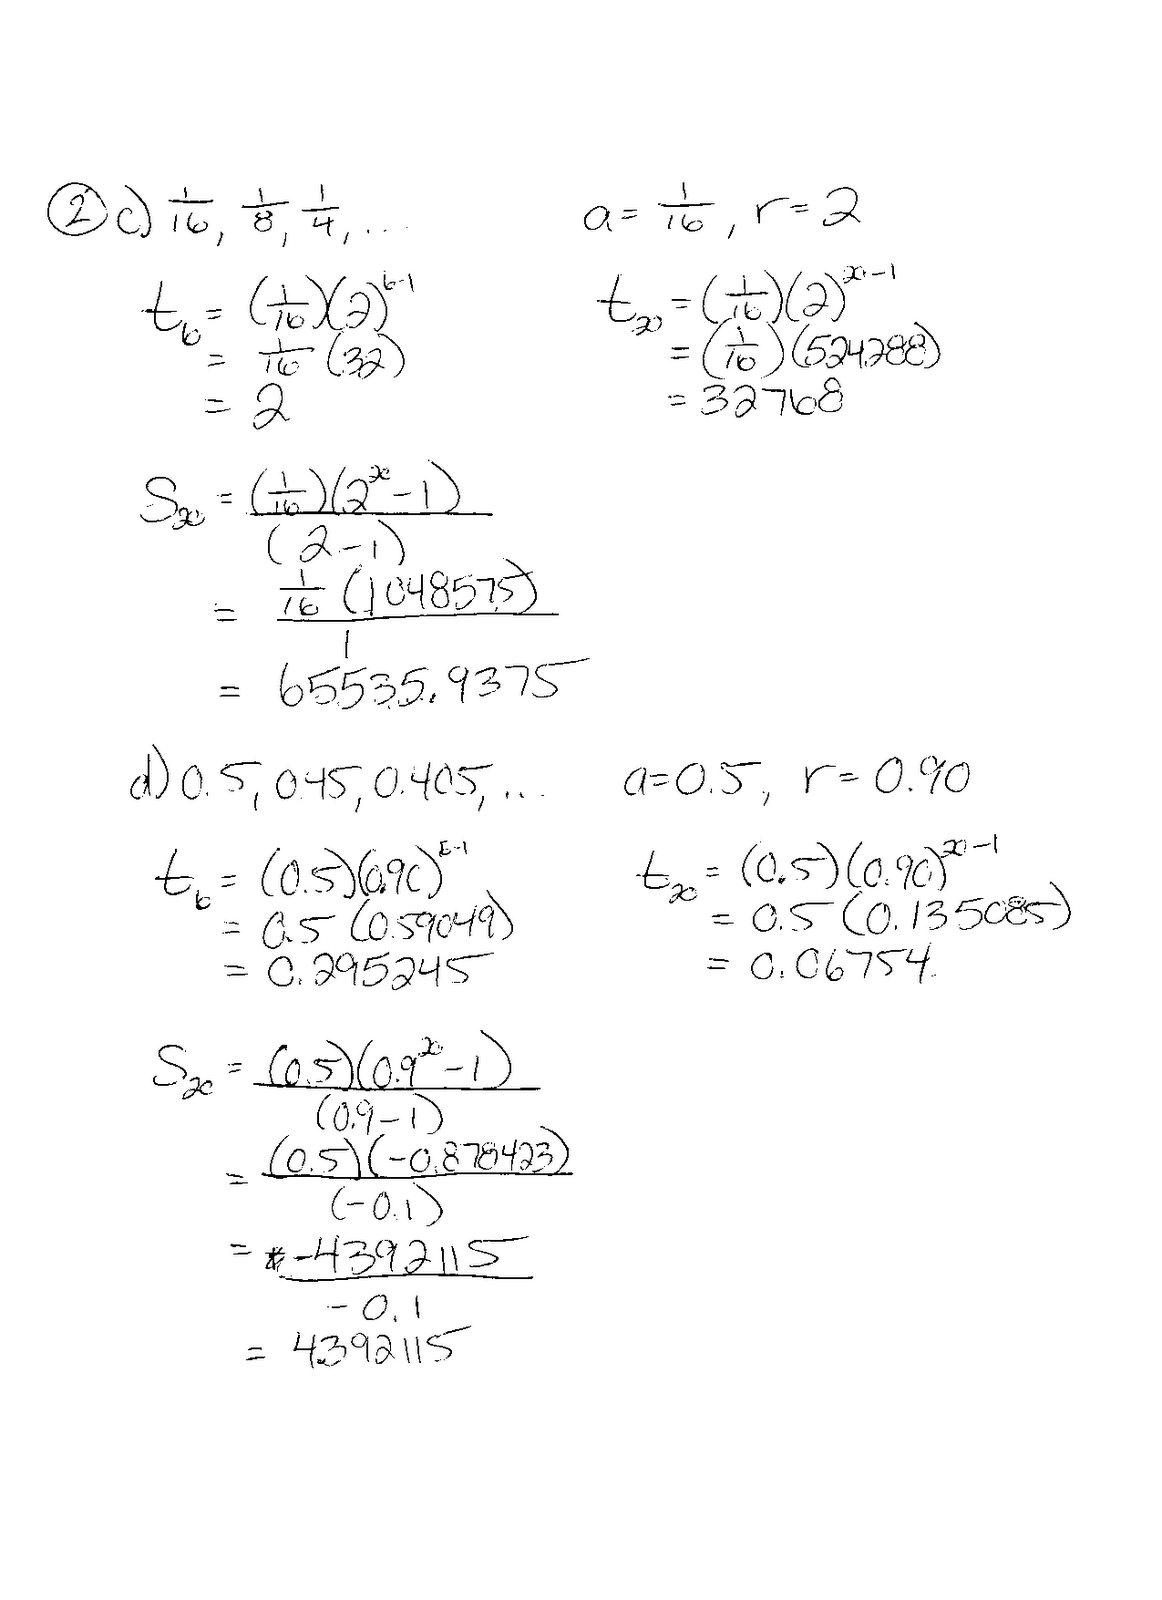 ② c) 1/16, 1/8, 1/4, ... a = 1/16, r = 2
t₆ = (1/16)(2)^(6-1) t₂₀ = (1/16)(2)^(20-1)
= 1/16 (32) = (1/16)(524288)
= 2 = 32768
S₂₀ = (1/16)(2^20 - 1)
(2-1)
= 1/16 (1048575)
1
= 65535.9375
d) 0.5, 0.45, 0.405, ... a=0.5, r = 0.90
t₆ = (0.5)(0.90)^(6-1) t₂₀ = (0.5)(0.90)^(20-1)
= 0.5 (0.59049) = 0.5 (0.135085)
= 0.295245 = 0.06754
S₂₀ = (0.5)(0.9^20 - 1)
(0.9-1)
= (0.5)(-0.878423)
(-0.1)
= -4392115
-0.1
= 4.392115